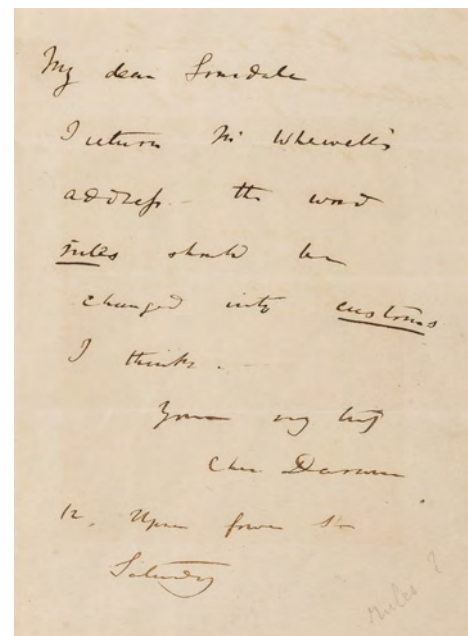 My dear Lonsdale
I return Mr Whewell's
address — the word
rules should be
changed into customs
I think. —
Yours very truly
Chas Darwin
12, Upper Gower St
Saturday
rules ?